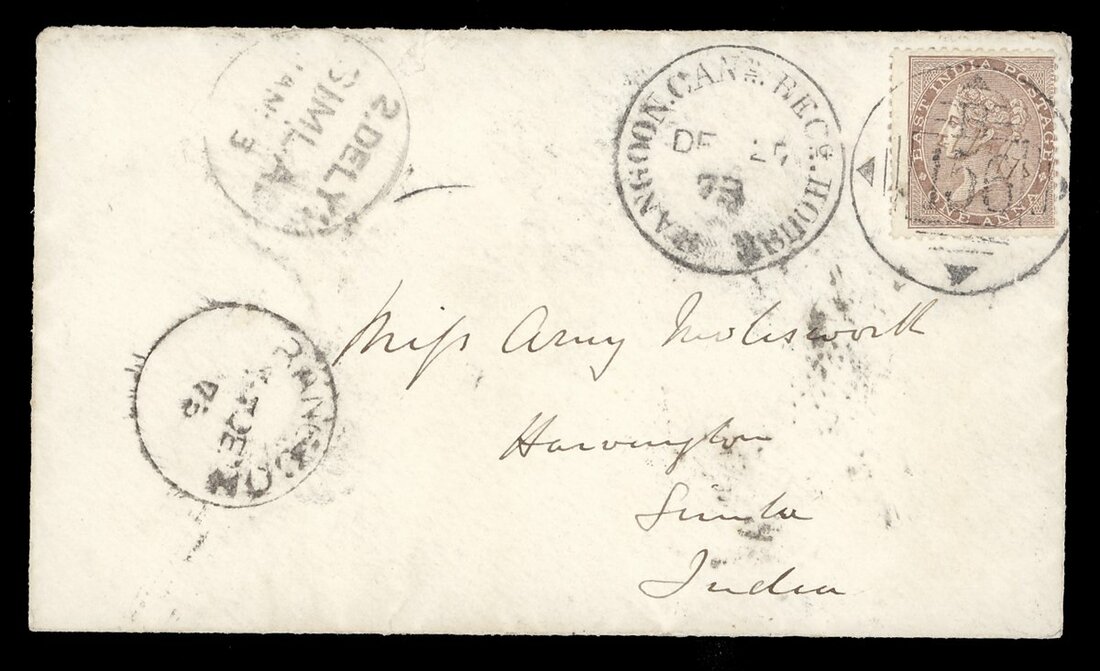 2.DELY
SIMLA
JAN
3
RANGOON.CANT. RECG. HOUSE
DE 25
73
EAST INDIA POSTAGE
ONE ANNA
B
156
Miss Amy Molesworth
Harvington
Simla
India
RANGOON
DE
73